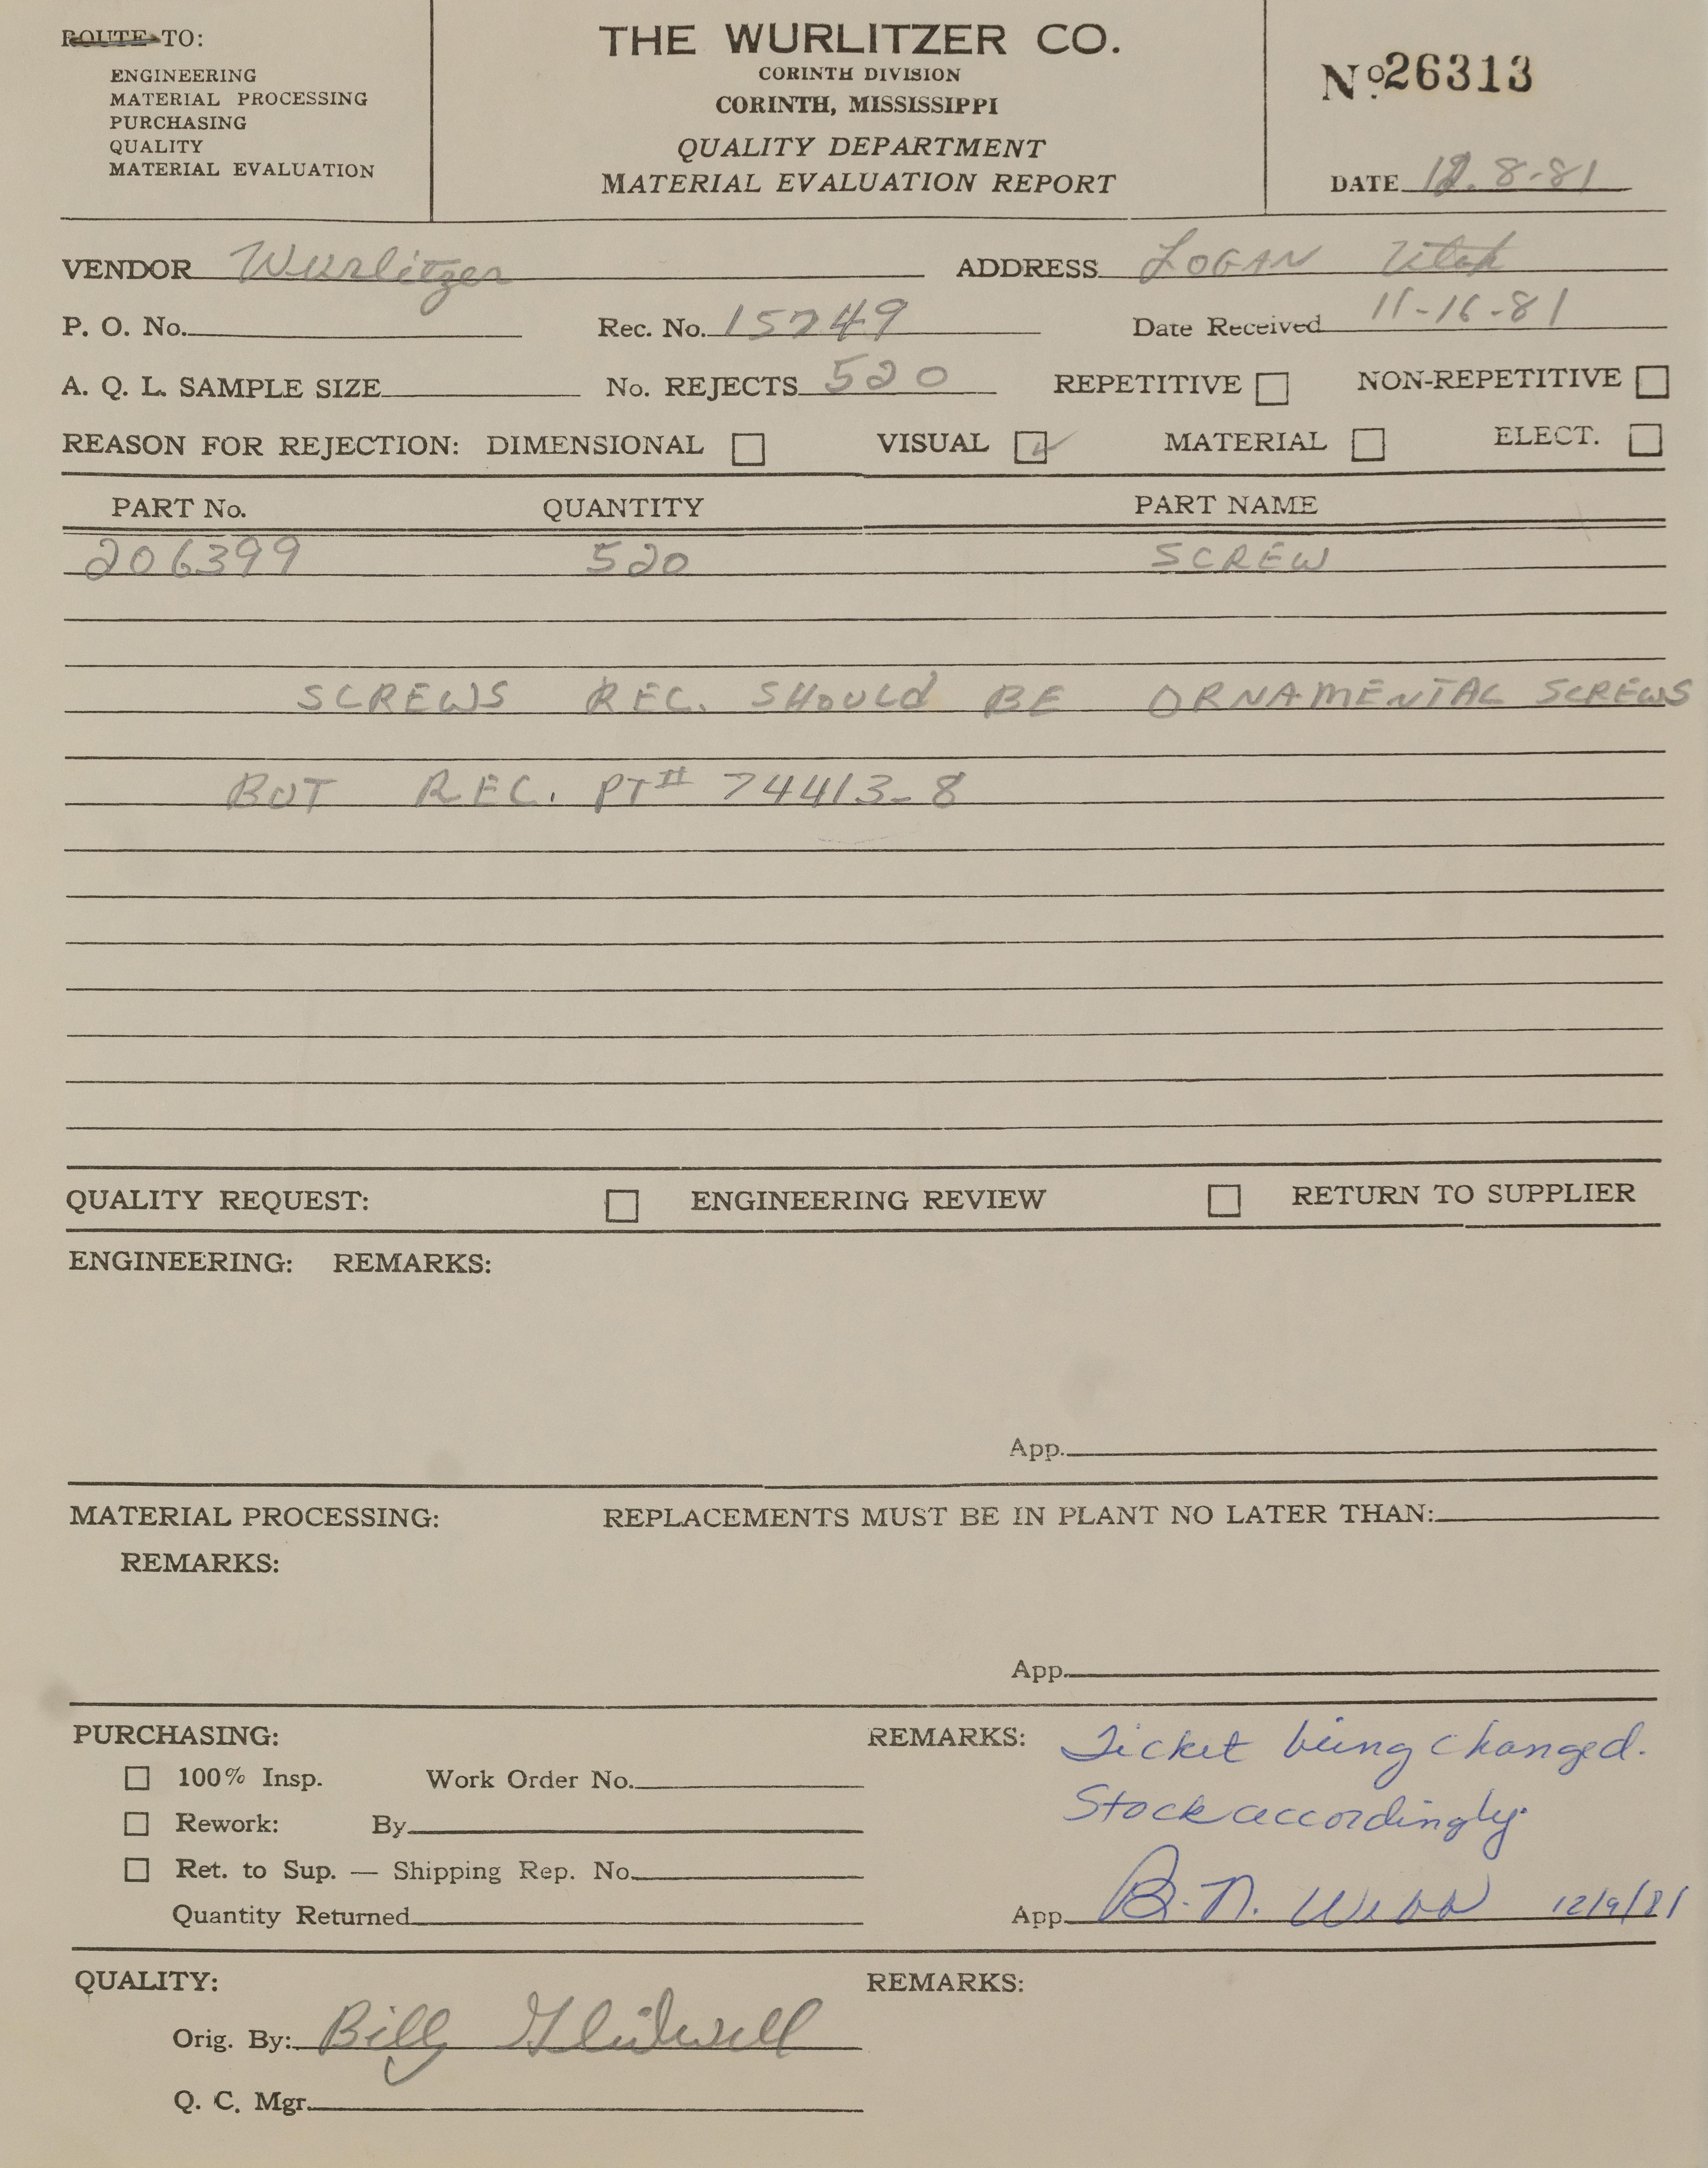 ROUTE TO:
ENGINEERING
MATERIAL PROCESSING
PURCHASING
QUALITY
MATERIAL EVALUATION
THE WURLITZER CO.
CORINTH DIVISION
CORINTH, MISSISSIPPI
QUALITY DEPARTMENT
MATERIAL EVALUATION REPORT
No. 26313
DATE 12.8-81
VENDOR Wurlitzer ADDRESS LOGAN Utah
P. O. No. Rec. No. 15749 Date Received 11-16-81
A. Q. L. SAMPLE SIZE No. REJECTS 520 REPETITIVE ☐ NON-REPETITIVE ☐
REASON FOR REJECTION: DIMENSIONAL ☐ VISUAL ☑ MATERIAL ☐ ELECT. ☐
PART No. QUANTITY PART NAME
206399 520 SCREW
SCREWS REC. SHOULD BE ORNAMENTAL SCREWS
BUT REC. PT# 74413-8
QUALITY REQUEST: ☐ ENGINEERING REVIEW ☐ RETURN TO SUPPLIER
ENGINEERING: REMARKS:
App.
MATERIAL PROCESSING: REPLACEMENTS MUST BE IN PLANT NO LATER THAN:
REMARKS:
App.
PURCHASING: REMARKS: Ticket being changed.
☐ 100% Insp. Work Order No. Stock accordingly.
☐ Rework: By
☐ Ret. to Sup. — Shipping Rep. No.
Quantity Returned App. B. N. Webb 12/9/81
QUALITY: REMARKS:
Orig. By: Billy Glidwell
Q. C. Mgr.